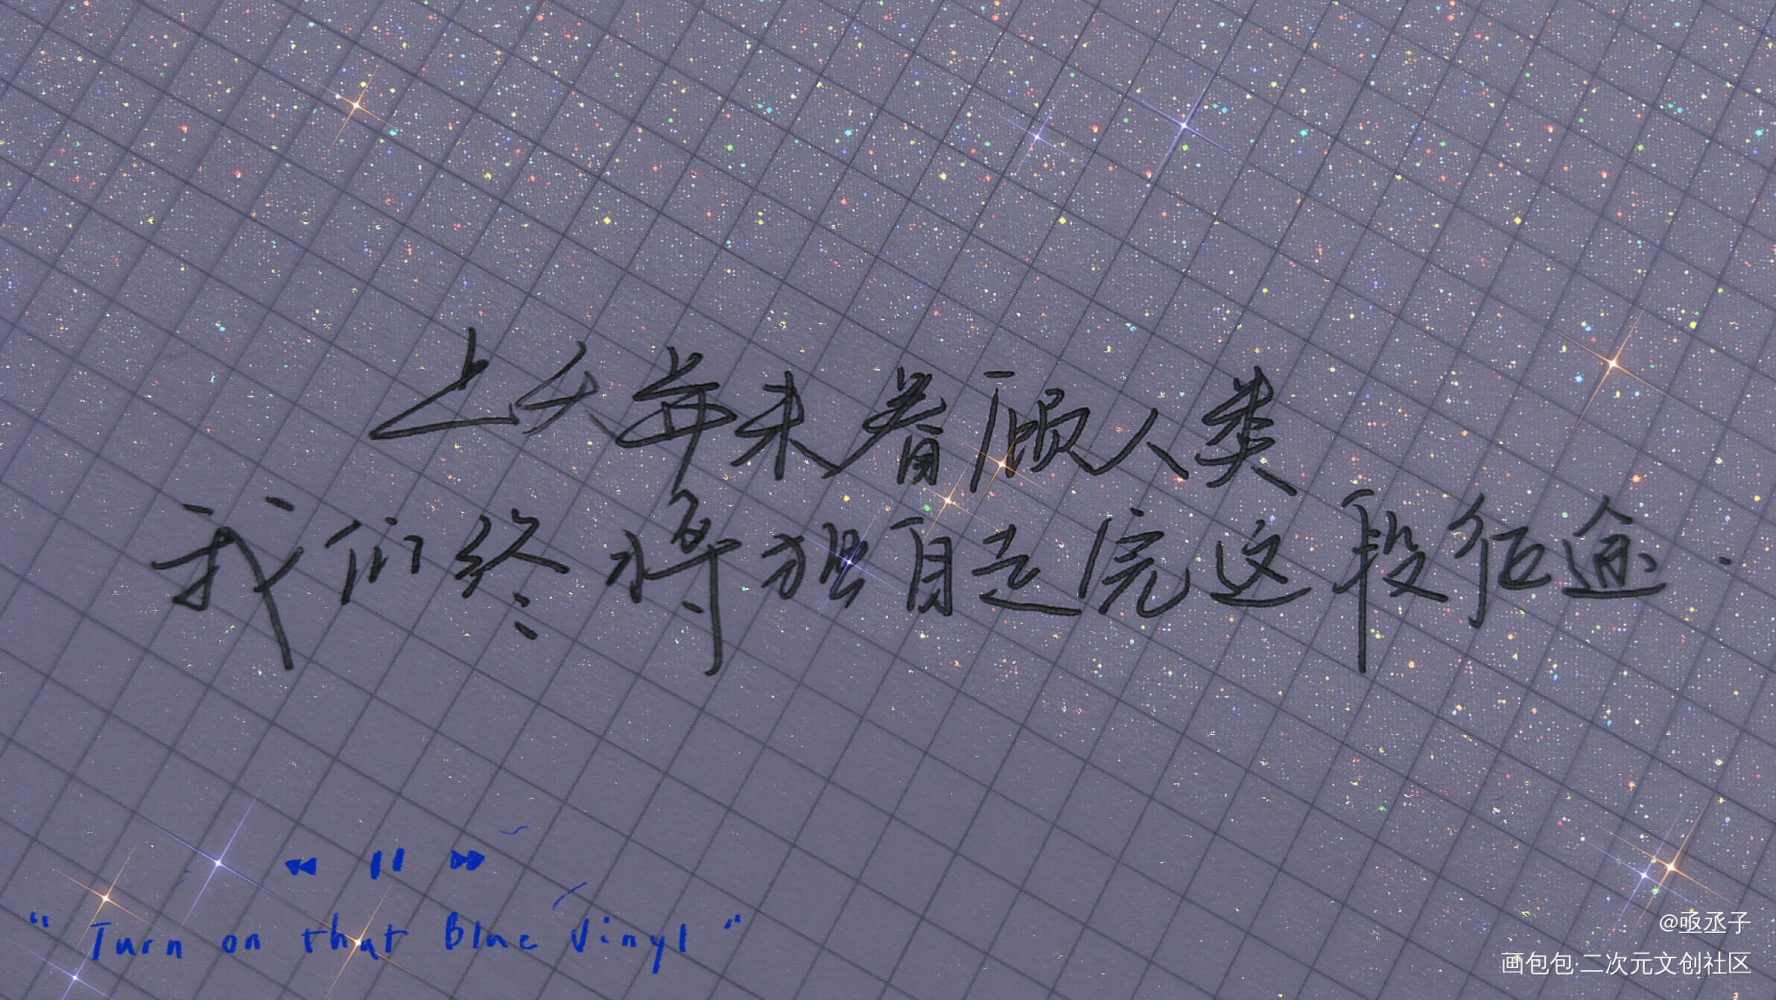 上天每未眷顾人类
我们终将独自走完这段征途.
"Turn on that Blue Vinyl"
@亟丞子
画包包·二次元文创社区